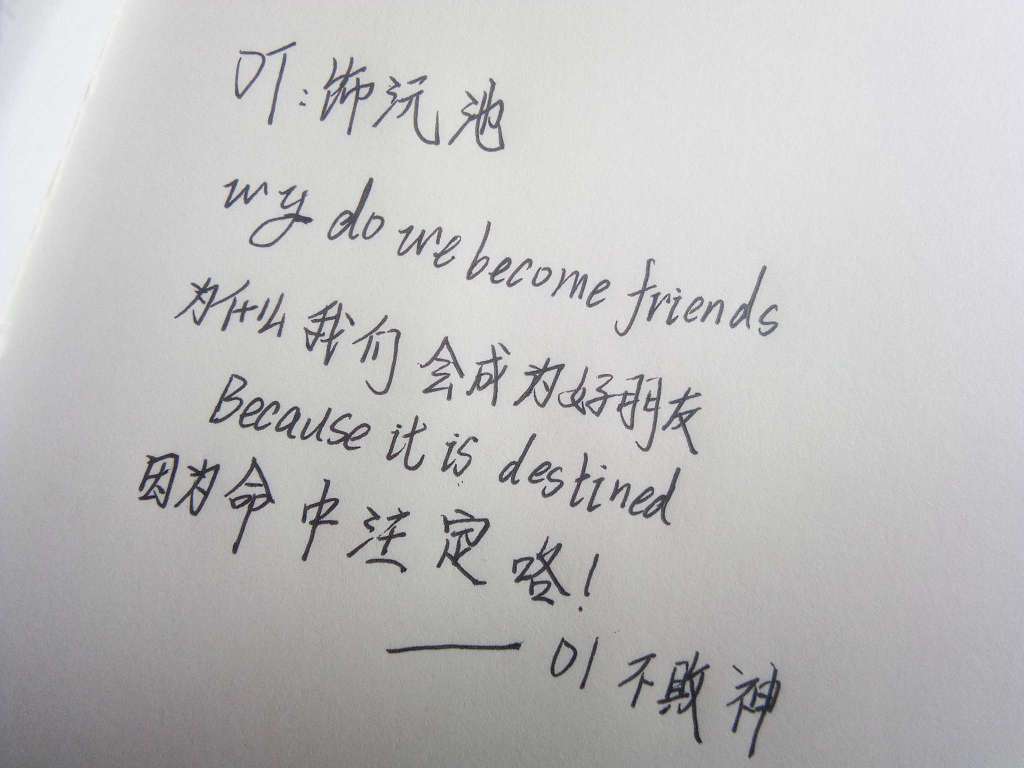 吖:饰沅池
wy do we become friends
为什么我们会成为好朋友
Because it is destined
因为命中注定咯!
—— 01 不败神